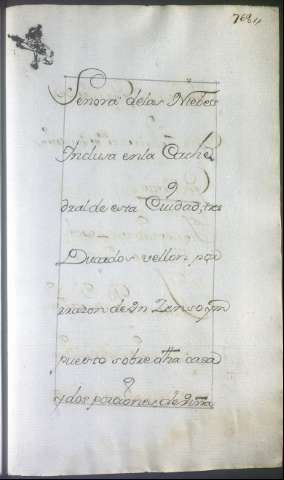 Señora delas Niebes
Inclusa enla Cathe
dral de esta Ciudad, tres
Ducados vellon por
razon de un Zenso ym
puesto sobre dha casa
y dos porciones de Viña